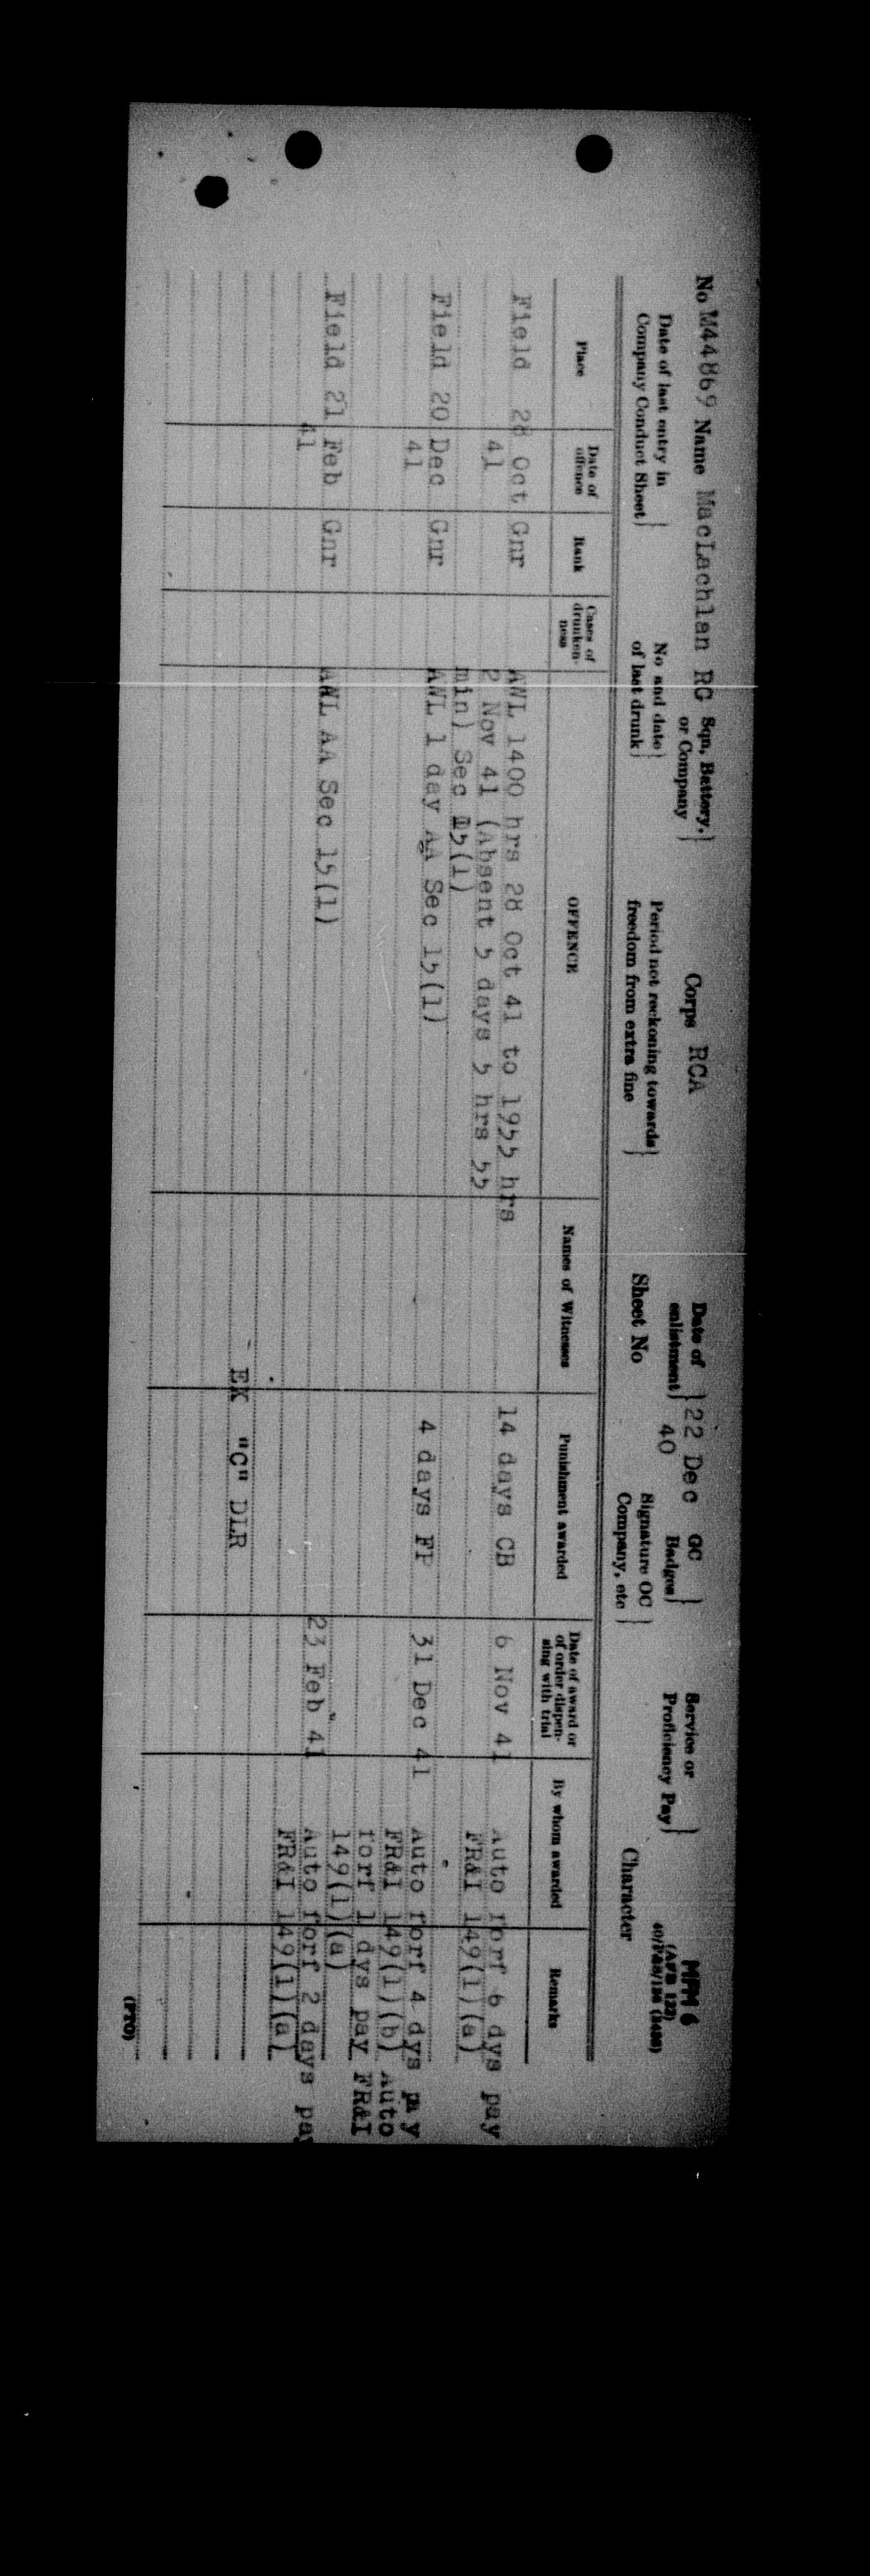 No M44869 Name MacLachlan RG Sqn, Battery, or Company} Corps RCA Date of enlistment} 22 Dec 40 GC Badges} Service or Proficiency Pay} MFM 6
(AFB 122)
Date of last entry in Company Conduct Sheet} No and date of last drunk} Period not reckoning towards freedom from extra fine} Sheet No Signature OC Company, etc} Character
Place Date of offence Rank Cases of drunken-ness OFFENCE Names of Witnesses Punishment awarded Date of award or of order dispen-sing with trial By whom awarded Remarks
Field 28 Oct Gnr AWL 1400 hrs 28 Oct 41 to 1955 hrs 14 days CB 6 Nov 41 Auto forf 6 dys pay
41 2 Nov 41 (Absent 5 days 5 hrs 55 FR&I 149(1)(a)
min) Sec 15(1)
Field 20 Dec Gnr AWL 1 day AA Sec 15(1) 4 days FP 31 Dec 41 Auto forf 4 dys pay
41 FR&I 149(1)(b) Auto
forf 1 dys pay FR&I
149(1)(a)
Field 21 Feb Gnr AWL AA Sec 15(1) 23 Feb 41 Auto forf 2 days pay
41 FR&I 149(1)(a)
EK "C" DLR
(PTO)